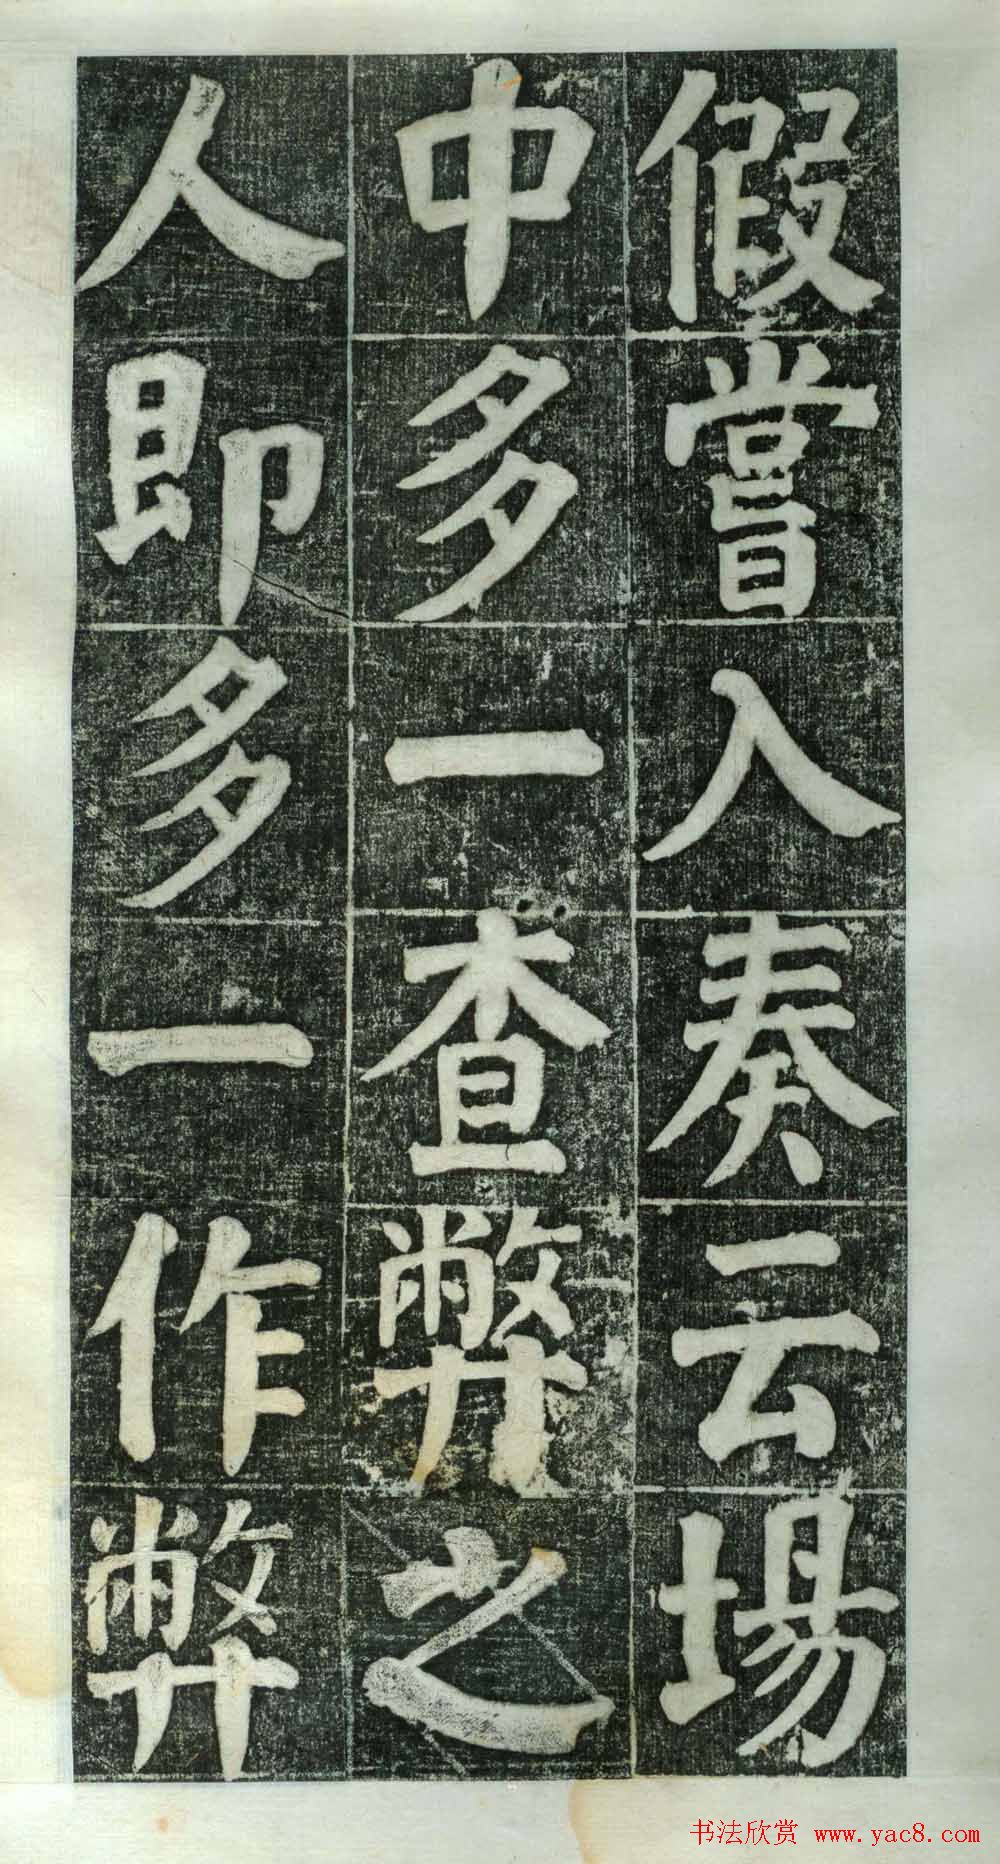 假嘗入奏云場
中多一查弊之
人即多一作弊
书法欣赏 www.yac8.com